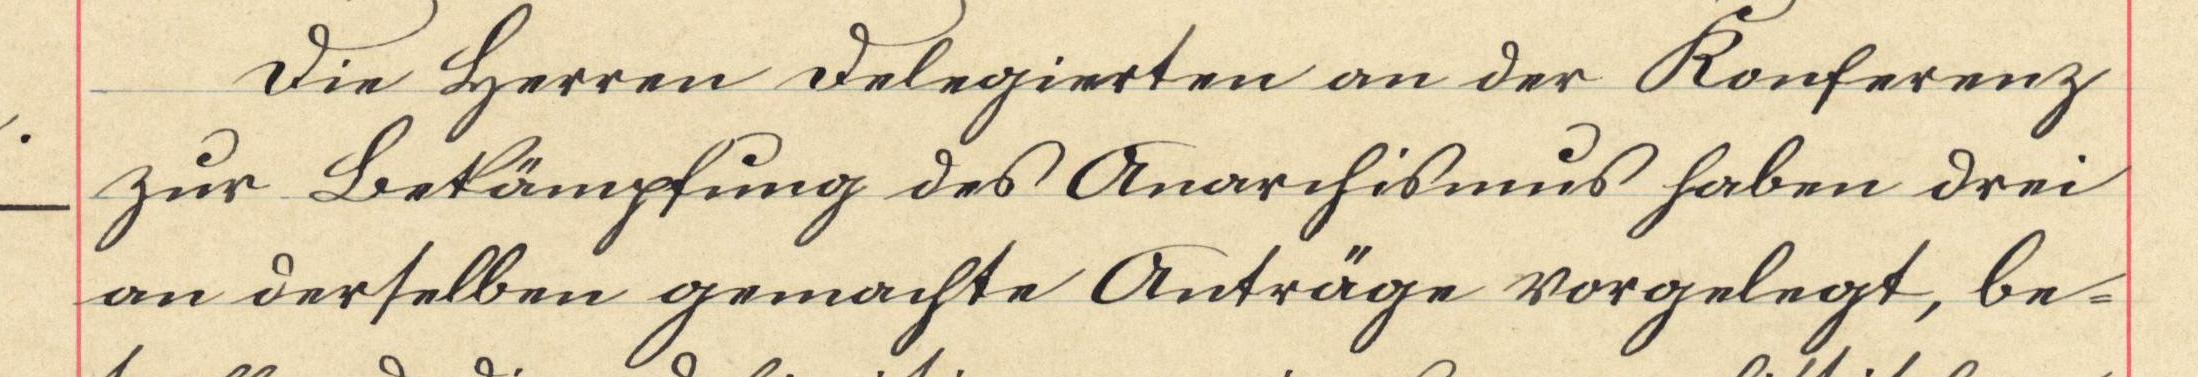 Die Herren Delegierten an der Konferenz
zur Bekämpfung des Anarchismus haben drei
an derselben gemachte Anträge vorgelegt, be-